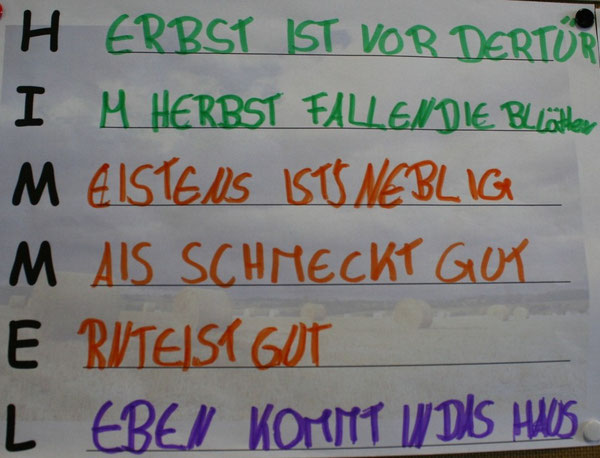 H ERBST IST VOR DERTÜR
I M HERBST FALLENDIE BLLätter
M EISTENS IST'S NEBLIG
M AIS SCHMECKT GUT
E RNTEIST GUT
L EBEN KOMMT IN DAS HAUS